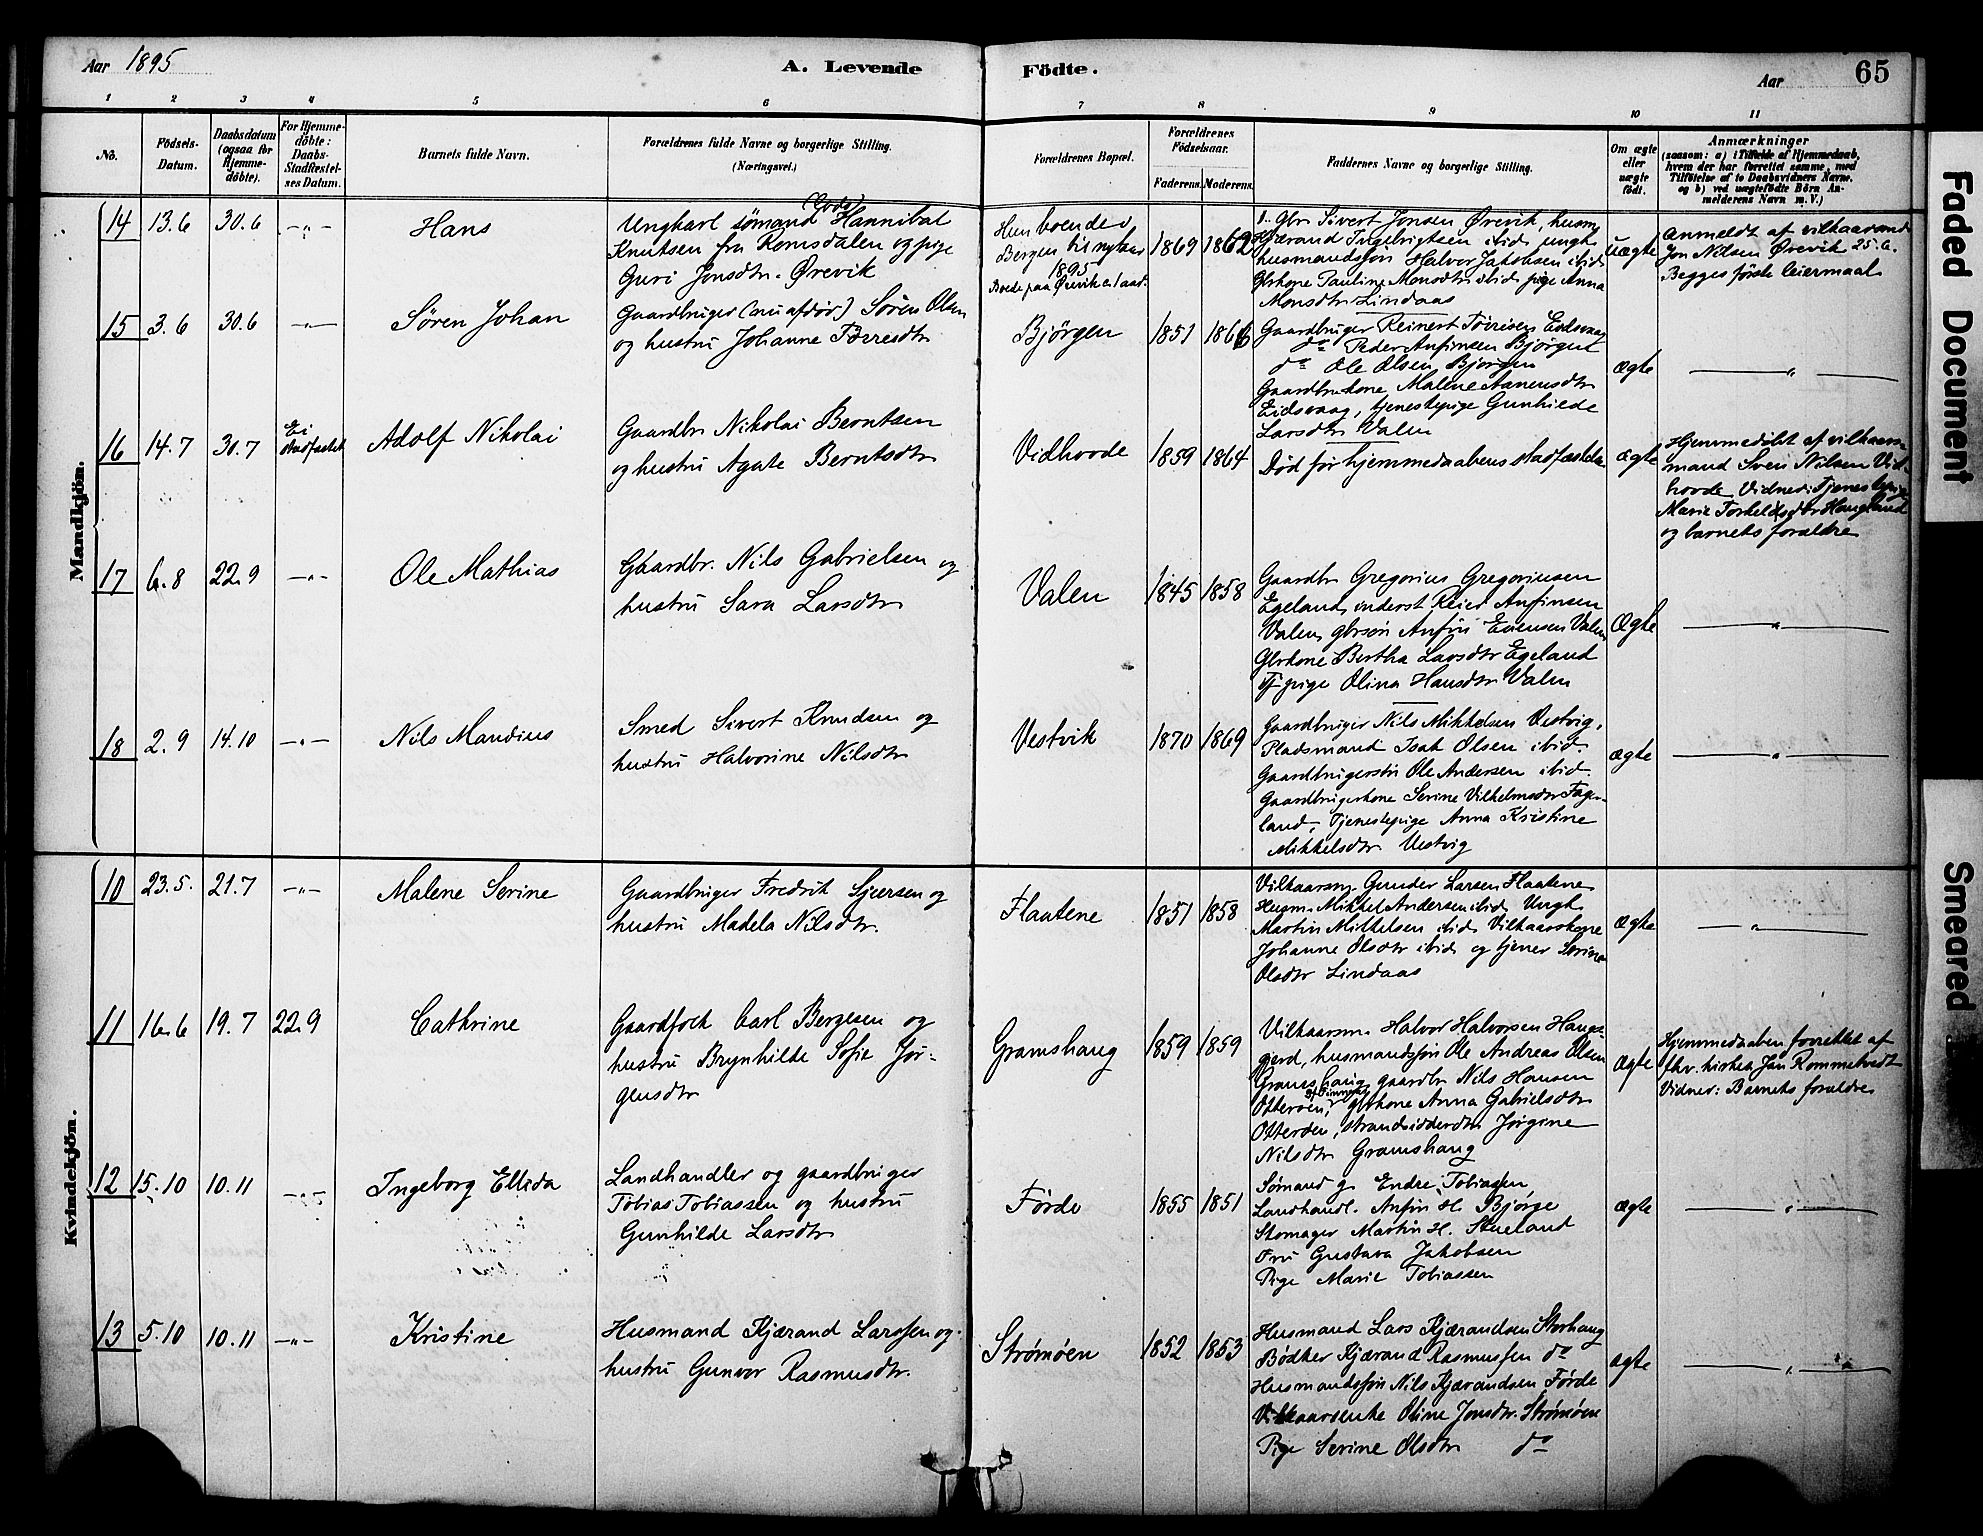 Aar 1895
A. Levende Födte.
Aar
65
1 2 3 4 5 6 7 8 9 10 11
No.
Födsels-
Datum.
Daabsdatum
(ogsaa for
Hjemme-
döbte).
For Hjemme-
döbte:
Daabs-
Stadfæstel-
ses Datum.
Barnets fulde Navn.
Forældrenes fulde Navne og borgerlige Stilling.
(Næringsvei.)
Forældrenes Bopæl.
Forældrenes
Födselsaar.
Faderens. Moderens.
Faddernes Navne og borgerlige Stilling.
Om ægte
eller
uægte
födt.
Anmærkninger
(saasom: a) i Tilfælde af Hjemmedaab,
hvem der har forrettet samme, med
Tilföielse af to Daabsvidners Navne,
og b) ved uægtefödte Börn An-
melderens Navn m. V.)
Mandkjön.
14 13.6 30.6 -„- Hans
Ungkarl sømand Hannibal
Knutsen fra Romsdalen og pige
Guri Jonsdtr. Ørevik
Hun boende i
Bergen til nytaar
1895
Boede paa Ørevik
1869 1862
1. Gbr Sivert Jonsen Ørevik, husm.
Kjærand Ingebrigtsen ibid, ungk.
husmandssøn Halvor Jakobsen ibid
Gbrkone Pauline Monsdtr ibid, pige Anna
Monsdtr Lindaas
uægte
Anmeldt af vilkaarsmd
Jon Nilsen Ørevik 25.6.
Begges første leiermaal
15 3.6 30.6 -„- Søren Johan
Gaardbruger (nu afdød) Søren Olsen
og hustru Johanne Tørresdtr
Bjørgen
1851 1866
Gaardbruger Reinert Tørrisen Eidsvaag
do Peder Anfinsen Bjørgen
do Ole Olsen Bjørgen
Gaardbr.kone Malene Aanensdtr
Eidsvaag, tjenestepige Gunhilde
Larsdtr Valen
ægte
-„-
16 14.7 30.7 Ei
stadfæstet
Adolf Nikolai
Gaardbr Nikolai Berntsen
og hustru Agate Berntsdtr
Vidhovde
1859 1864
Død før hjemmedaabens stadfæstelse
ægte
Hjemmedøbt af vilkaars-
mand Sven Nilsen Vid-
hovde. Vidner: Tjenestepige
Marie Torkelsdtr Haugland
og barnets forældre
17 6.8 22.9 -„- Ole Mathias
Gaardbr. Nils Gabrielsen og
hustru Sara Larsdtr
Valen
1845 1858
Gaardbr Gregorius Gregoriusen
Egeland, inderst Reier Anfinsen
Valen, gbrsøn Anfin Eriensen Valen
Gbrkone Bertha Larsdtr Egeland
Tj.pige Olina Hansdtr Valen
Ægte
-„-
18 2.9 14.10 -„- Nils Mandius
Smed Sivert Knudsen og
hustru Halvorine Nilsdtr
Vestvik
1870 1869
Gaardbruger Nils Mikkelsen Vestvig,
Pladsmand Isak Olsen ibid.
Gaardbrugersøn Ole Andersen ibid.
Gaardbrugerkone Serine Vilhelmsdtr Fage-
land, Tjenestepige Anna Kristine
Mikkelsdtr Vestvig
ægte
-„-
Kvindekjön.
10 23.5. 21.7 -„- Malene Serine
Gaardbruger Fredrik Sjursen og
hustru Madela Nilsdtr.
Flaatene
1851 1858
Vilkaarsm. Gunder Larsen Flaatene
Husm. Mikkel Andersen ibid. Ungk.
Martin Mikkelsen ibid. Vilkaarskone
Johanne Olsdtr ibid og tjener Serine
Olsdtr Lindaas
ægte
-„-
11 16.6 19.7 22.9 Cathrine
Gaardfolk Carl Bergesen og
hustru Brynhilde Sofie Jør-
gensdtr
Gramshaug
1859 1859
Vilkaarsm. Halvor Halvorsen Haugs-
gjerd, husmandssøn Ole Andreas Olsen
Gramshaug, gaardbr Nils Hansen
Otterøen, gbrkone Anna Gabrielsdtr
Otterøen, strandsidderdtr Jørgine
Nilsdtr Gramshaug
ægte
Hjemmedaaben forrettet af
fhv. kirkes. Jan Rommetvedt
Vidner: Barnets forældre
12 15.10 10.11 -„- Ingeborg Ellida
Landhandler og gaardbruger
Tobias Tobiassen og hustru
Gunhilde Larsdtr
Førde
1855 1851
Sømand g. Endre Tobiassen
Landhandl. Anfin H. Bjørge
Skomager Martin H. Stueland
Fru Gustava Jakobsen
Pige Marie Tobiassen
ægte
-„-
13 5.10 10.11 -„- Kristine
Husmand Kjærand Larssen og
hustru Gunvor Rasmusdtr.
Strømøen
1852 1853
Husmand Lars Kjærandsen Storhaug
Bødker Kjærand Rasmussen do
Husmandssøn Nils Kjærandsen Førde
Vilkaarsenke Oline Jonsdtr. Strømøen
Pige Serine Olsdtr do
ægte
-„-
Faded Document
Smeared